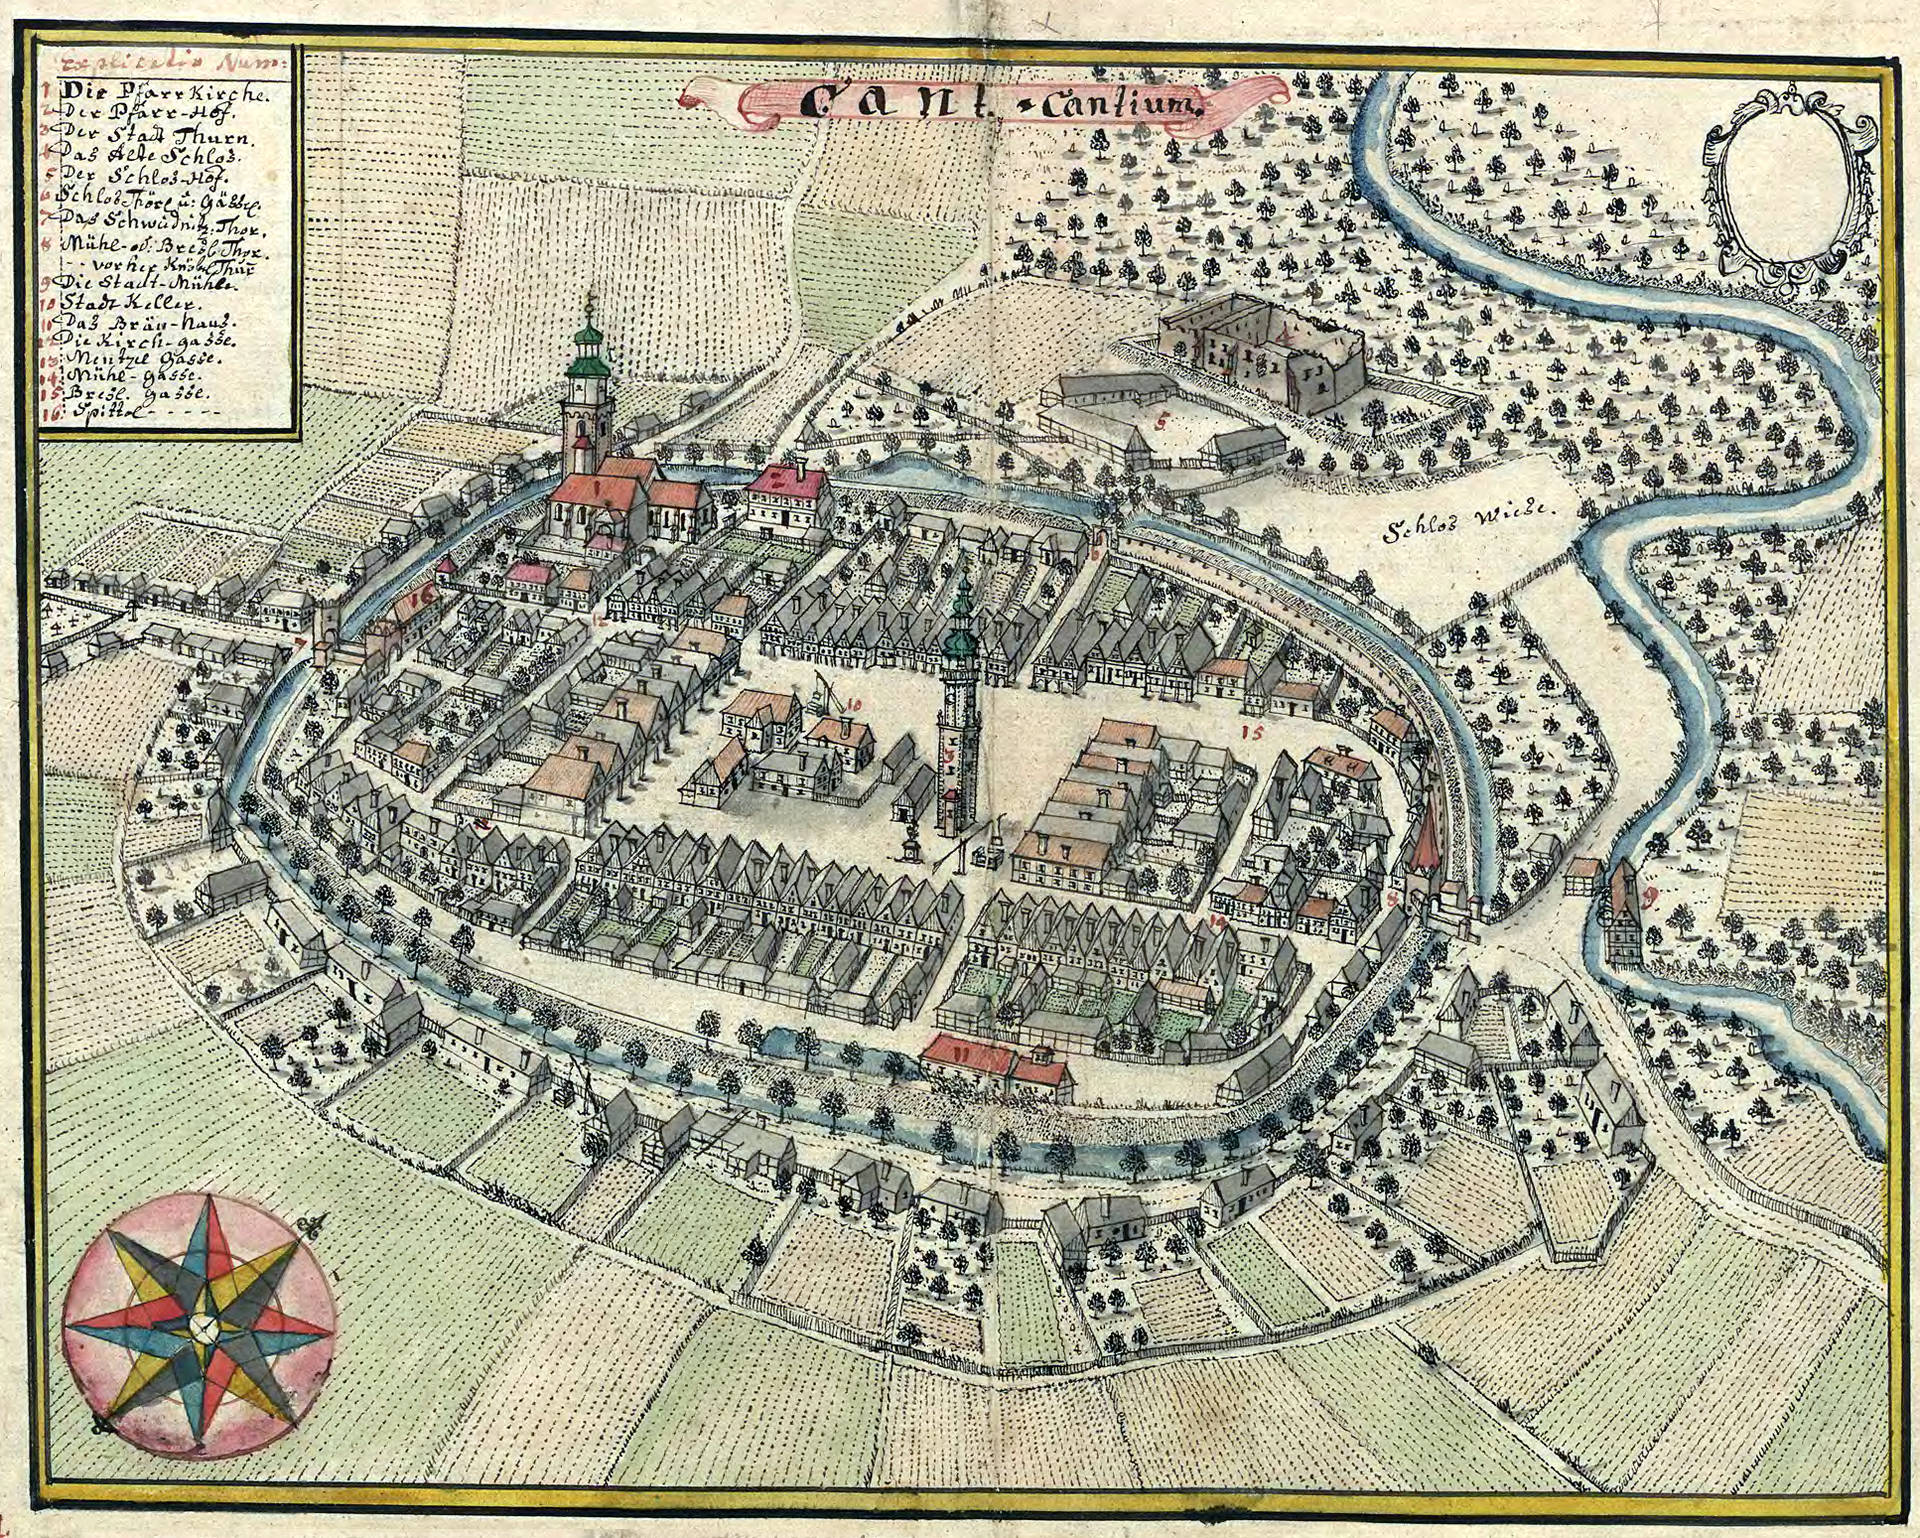 Explicatio Num:
1 Die PfarrKirche.
2 Der Pfarr-Hof.
3 Der Stadt Thurn.
4 Das Alte Schlos.
5 Der Schlos-Hof.
6 Schlos Thörl u: Gässel.
7 Das Schwudnitz. Thor.
8 Mühl- od: Bresl Thor.
-- vorher Thür
9 Die Stadt-Mühle.
10 Stadt Keller.
11 Das Bräu-haus.
12 Die Kirch-gasse.
13 Mentzel Gasse.
14 Mühl-Gasse.
15 Bresl. Gasse.
16 Spittel - - - - -
Cant. Cantium.
4
5
Schlos Wiese.
1
2
6
16
7
12
10
3
15
9
8
14
11